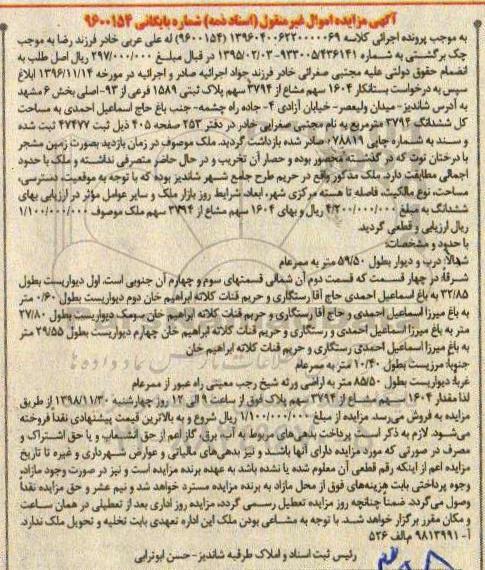 آگهی مزایده اموال غیر منقول (اسناد ذمه) شماره بایگانی ۹۶۰۰۱۵۴
به موجب پرونده اجرائی کلاسه ۱۳۹۶۰۴۰۰۶۲۲۰۰۰۰۰۶۹ (۹۶۰۰۱۵۴) له علی عربی خادر فرزند رضا به موجب
چک برگشتی به شماره ۹۳۳۰۰۵/۴۳۶۱۴۱-۱۳۹۵/۰۲/۰۳ در قبال مبلغ ۲۹۷/۰۰۰/۰۰۰ ریال اصل طلب به
انضمام حقوق دولتی علیه مجتبی صفرائی خادر فرزند جواد اجرائیه صادر و اجرائیه در مورخه ۱۳۹۶/۱۱/۱۴ ابلاغ
سپس به درخواست بستانکار ۱۶۰۴ سهم مشاع از ۳۷۹۴ سهم پلاک ثبتی ۱۵۸۹ فرعی از ۹۳-اصلی بخش ۶ مشهد
به آدرس شاندیز-میدان ولیعصر- خیابان آزادی ۴- جاده راه چشمه- جنب باغ حاج اسماعیل احمدی به مساحت
کل ششدانگ ۳۷۹۴ مترمربع به نام مجتبی صفرایی خادر در دفتر ۲۵۳ صفحه ۴۰۵ ذیل ثبت ۴۷۴۷۷ ثبت شده
و سند به شماره چاپی ۰۷۸۸۱۹ صادر شده بازداشت گردید. ملک موصوف در زمان بازدید بصورت زمین مشجر
با درختان توت که در گذشته محصور بوده و حصار آن تخریب و در حال حاضر متصرفی نداشته و ملک با حدود
اجمالی مطابقت دارد. ملک مذکور واقع در حریم طرح جامع شهر شاندیز بوده که با توجه به موقعیت، دسترسی،
مساحت، نوع مالکیت، فاصله تا هسته مرکزی شهر، ابعاد، شرایط روز بازار ملک و سایر عوامل مؤثر در ارزیابی بهای
ششدانگ به مبلغ ۴/۲۰۰/۰۰۰/۰۰۰ ریال و بهای ۱۶۰۴ سهم مشاع از ۳۷۹۴ سهم ملک موصوف ۱/۱۰۰/۰۰۰/۰۰۰
ریال ارزیابی و قطعی گردید.
با حدود و مشخصات:
شمالا: درب و دیوار بطول ۵۹/۵۰ متر به ممرعام
شرقا: در چهار قسمت که قسمت دوم آن شمالی قسمتهای سوم و چهارم آن جنوبی است. اول دیواریست بطول
۳۲/۸۵ به باغ اسماعیل احمدی حاج آقا رستگاری و حریم قنات کلاته ابراهیم خان دوم دیواریست بطول ۰/۶۰ متر
به باغ میرزا اسماعیل احمدی و حاج آقا رستگاری و حریم قنات کلاته ابراهیم خان سومک دیواریست بطول ۲۷/۸۰
متر به باغ میرزا اسماعیل احمدی و رستگاری و حریم قنات کلاته ابراهیم خان چهارم دیواریست بطول ۲۹/۵۵ متر
به باغ میرزا اسماعیل احمدی رستگاری و حریم قنات کلاته ابراهیم خان
جنوبا: مرزیست بطول ۱۰/۴۰ متر به ممرعام
غربا: دیواریست بطول ۸۵/۵۰ متر به اراضی ورثه شیخ رجب معینی راه عبور از ممرعام
لذا مقدار ۱۶۰۴ سهم مشاع از ۳۷۹۴ سهم پلاک فوق از ساعت ۹ الی ۱۲ روز چهارشنبه ۱۳۹۸/۱۱/۳۰ از طریق
مزایده به فروش می‌رسد. مزایده از مبلغ ۱/۱۰۰/۰۰۰/۰۰۰ ریال شروع و به بالاترین قیمت پیشنهادی نقدا فروخته
می‌شود. لازم به ذکر است پرداخت بدهی‌های مربوط به آب، برق، گاز اعم از حق انشعاب و یا حق اشتراک و
مصرف در صورتی که مورد مزایده دارای آنها باشد و نیز بدهی‌های مالیاتی و عوارض شهرداری و غیره تا تاریخ
مزایده اعم از اینکه رقم قطعی آن معلوم شده یا نشده باشد به عهده برنده مزایده است و نیز در صورت وجود مازاد،
وجوه پرداختی بابت هزینه‌های فوق از محل مازاد به برنده مزایده مسترد خواهد شد و نیم عشر و حق مزایده نقداً
وصول می‌گردد. ضمناً چنانچه روز مزایده تعطیل رسمی گردد، مزایده روز اداری بعد از تعطیلی در همان ساعت و
و مکان مقرر برگزار خواهد شد. با توجه به مشاعی بودن ملک این اداره تعهدی بابت تخلیه و تحویل ملک ندارد.
آ- ۹۸۱۳۹۹۱ م‌الف ۵۲۶
رئیس ثبت اسناد و املاک طرقبه شاندیز- حسن ابوترابی